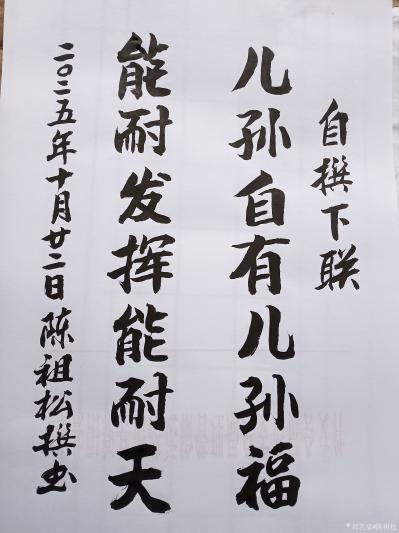 自撰下联
儿孙自有儿孙福
能耐发挥能耐天
二〇二五年十月廿二日陈祖松撰书